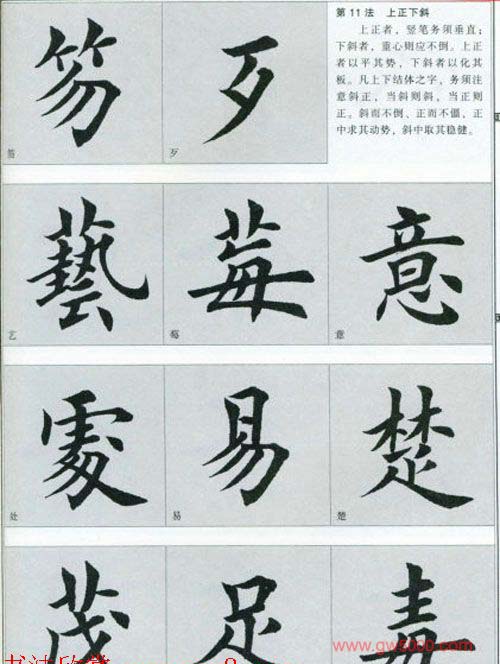 第11法 上正下斜
上正者，竖笔务须垂直；
下斜者，重心则应不倒。上正
者以平其势，下斜者以化其
板。凡上下结体之字，务须注
意斜正，当斜则斜，当正则
正。斜而不倒、正而不僵，正
中求其动势，斜中取其稳健。
笏 歹
笏 歹
藝 莓 意
艺 莓 意
處 易 楚
处 易 楚
茂 足 毒
书法欣赏